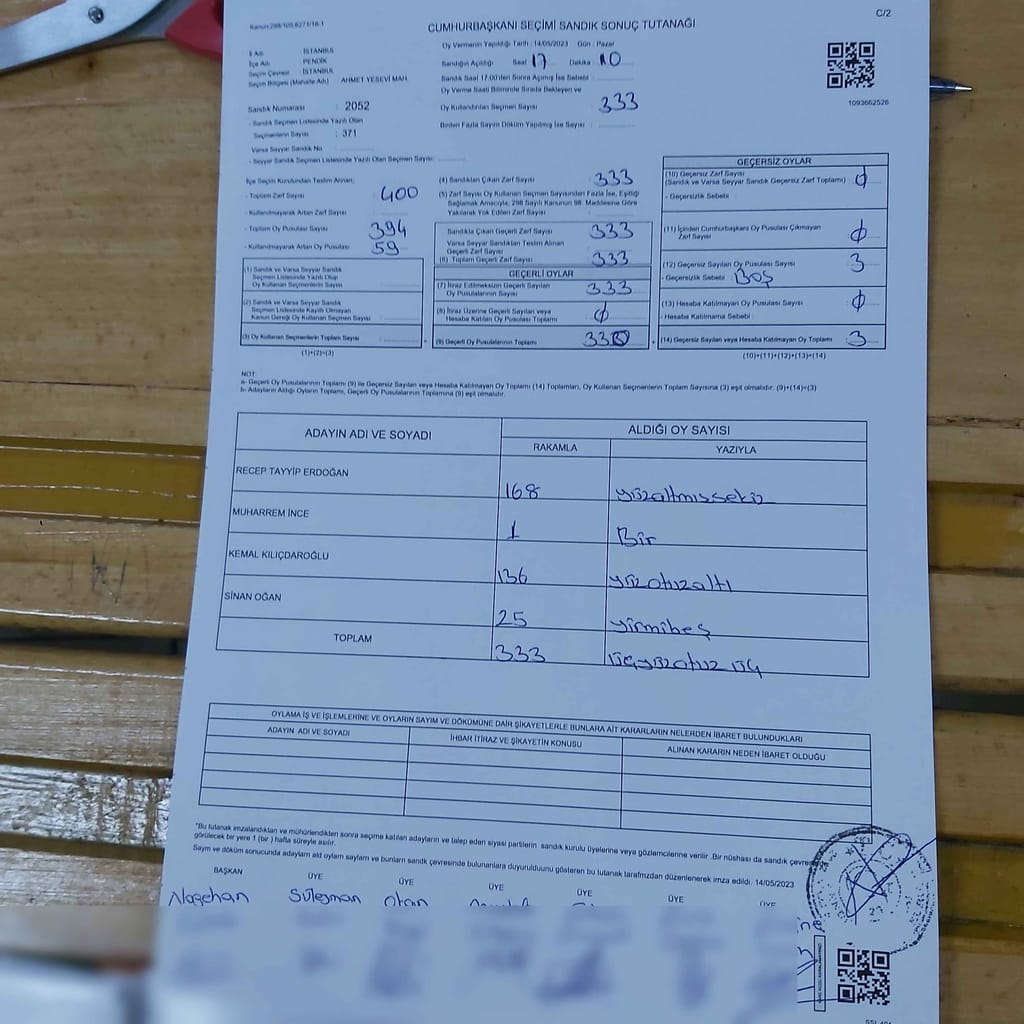 Kanun:298/105,6271/18-1
C/2
CUMHURBAŞKANI SEÇİMİ SANDIK SONUÇ TUTANAĞI
İl Adı : İSTANBUL
İlçe Adı : PENDİK
Seçim Çevresi : İSTANBUL
Seçim Bölgesi (Mahalle Adı) : AHMET YESEVİ MAH
Sandık Numarası : 2052
- Sandık Seçmen Listesinde Yazılı Olan
Seçmenlerin Sayısı : 371
Varsa Seyyar Sandık No :
- Seyyar Sandık Seçmen Listesinde Yazılı Olan Seçmen Sayısı:
Oy Vermenin Yapıldığı Tarih : 14/05/2023 Gün : Pazar
Sandığın Açıldığı Saat 17 Dakika 10
Sandık Saat 17.00'den Sonra Açılmış İse Sebebi :
Oy Verme Saati Bitiminde Sırada Bekleyen ve
Oy Kullandırılan Seçmen Sayısı : 333
Birden Fazla Sayım Döküm Yapılmış İse Sayısı :
1093662526
İlçe Seçim Kurulundan Teslim Alınan;
- Toplam Zarf Sayısı : 400
- Kullanılmayarak Artan Zarf Sayısı :
- Toplam Oy Pusulası Sayısı : 394
- Kullanılmayarak Artan Oy Pusulası : 59
(1) Sandık ve Varsa Seyyar Sandık
Seçmen Listesinde Yazılı Olup
Oy Kullanan Seçmenlerin Sayısı :
(2) Sandık ve Varsa Seyyar Sandık
Seçmen Listesinde Kayıtlı Olmayan
Kanun Gereği Oy Kullanan Seçmen Sayısı :
(3) Oy Kullanan Seçmenlerin Toplam Sayısı :
(1)+(2)=(3)
(4) Sandıktan Çıkan Zarf Sayısı : 333
(5) Zarf Sayısı Oy Kullanan Seçmen Sayısından Fazla İse, Eşitliği
Sağlamak Amacıyla, 298 Sayılı Kanunun 98. Maddesine Göre
Yakılarak Yok Edilen Zarf Sayısı :
Sandıkta Çıkan Geçerli Zarf Sayısı : 333
Varsa Seyyar Sandıktan Teslim Alınan
Geçerli Zarf Sayısı :
(6) Toplam Geçerli Zarf Sayısı : 333
GEÇERLİ OYLAR
(7) İtiraz Edilmeksizin Geçerli Sayılan
Oy Pusulalarının Sayısı : 333
(8) İtiraz Üzerine Geçerli Sayılan veya
Hesaba Katılan Oy Pusulası Toplamı : 0
(9) Geçerli Oy Pusulalarının Toplamı : 330
GEÇERSİZ OYLAR
(10) Geçersiz Zarf Sayısı : 0
(Sandık ve Varsa Seyyar Sandık Geçersiz Zarf Toplamı)
- Geçersizlik Sebebi :
(11) İçinden Cumhurbaşkanı Oy Pusulası Çıkmayan
Zarf Sayısı : 0
(12) Geçersiz Sayılan Oy Pusulası Sayısı : 3
- Geçersizlik Sebebi : BOŞ
(13) Hesaba Katılmayan Oy Pusulası Sayısı : 0
- Hesaba Katılmama Sebebi :
(14) Geçersiz Sayılan veya Hesaba Katılmayan Oy Toplamı : 3
(10)+(11)+(12)+(13)=(14)
NOT:
a- Geçerli Oy Pusulalarının Toplamı (9) ile Geçersiz Sayılan veya Hesaba Katılmayan Oy Toplamı (14) Toplamları, Oy Kullanan Seçmenlerin Toplam Sayısına (3) eşit olmalıdır. (9)+(14)=(3)
b- Adayların Aldığı Oyların Toplamı, Geçerli Oy Pusulalarının Toplamına (9) eşit olmalıdır.
ADAYIN ADI VE SOYADI ALDIĞI OY SAYISI
RAKAMLA YAZIYLA
RECEP TAYYİP ERDOĞAN 168 yüzaltmışsekiz
MUHARREM İNCE 1 Bir
KEMAL KILIÇDAROĞLU 136 yüzotuzaltı
SİNAN OĞAN 25 yirmibeş
TOPLAM 333 üçyüzotuz üç
OYLAMA İŞ VE İŞLEMLERİNE VE OYLARIN SAYIM VE DÖKÜMÜNE DAİR ŞİKAYETLERLE BUNLARA AİT KARARLARIN NELERDEN İBARET BULUNDUKLARI
ADAYIN ADI VE SOYADI İHBAR İTİRAZ VE ŞİKAYETİN KONUSU ALINAN KARARIN NEDEN İBARET OLDUĞU
*Bu tutanak imzalandıktan ve mühürlendikten sonra seçime katılan adayların ve talep eden siyasi partilerin sandık kurulu üyelerine veya gözlemcilerine verilir. Bir nüshası da sandık çevresinde
görülecek bir yere 1 (bir) hafta süreyle asılır.
Sayım ve döküm sonucunda adayların aldığı oyların sayımı ve bunların sandık çevresinde bulunanlara duyurulduğunu gösteren bu tutanak tarafımızdan düzenlenerek imza edildi. 14/05/2023
BAŞKAN ÜYE ÜYE ÜYE ÜYE ÜYE ÜYE
Süleyman